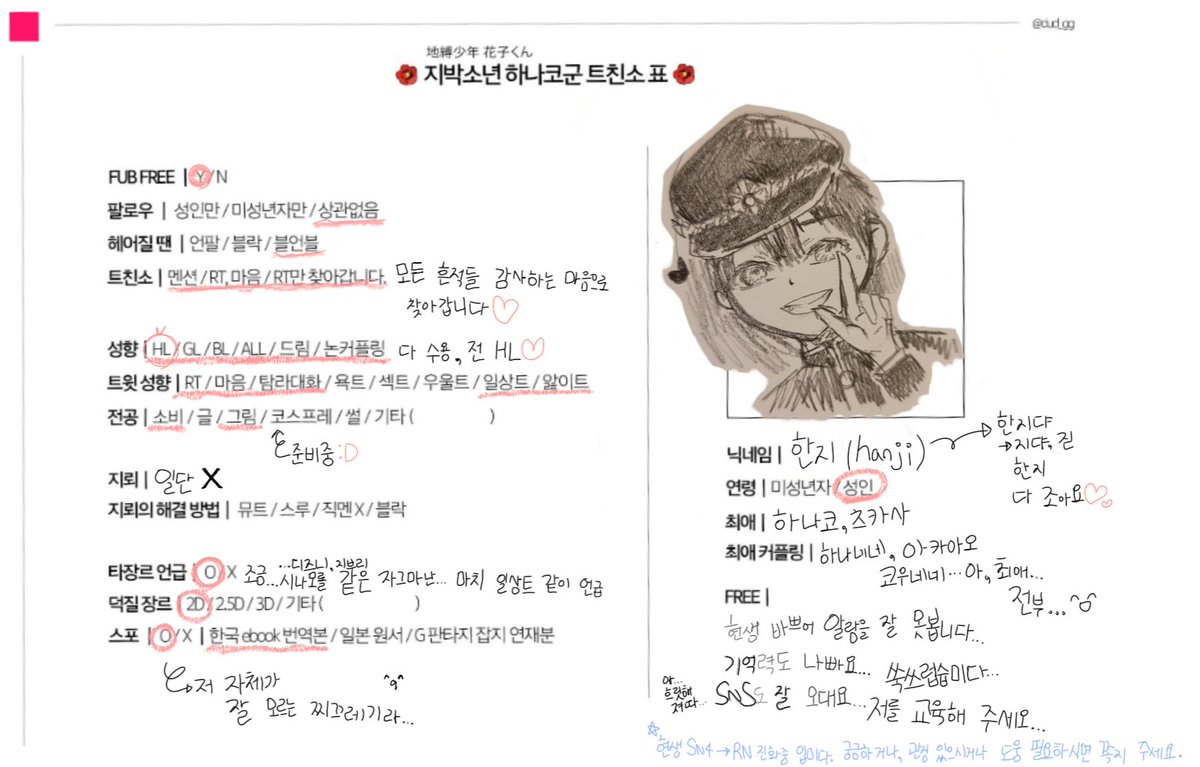 @ciud_gg
地縛少年 花子くん
지박소년 하나코군 트친소 표
FUB FREE | Y/N
팔로우 | 성인만 / 미성년자만 / 상관없음
헤어질 땐 | 언팔 / 블락 / 블언블
트친소 | 멘션 / RT, 마음 / RT만 찾아갑니다. 모든 흔적들 감사하는 마음으로
찾아갑니다♡
성향 | HL / GL / BL / ALL / 드림 / 논커플링 다 수용, 전 HL♡
트윗 성향 | RT / 마음 / 탐라대화 / 욕트 / 섹트 / 우울트 / 일상트 / 앓이트
전공 | 소비 / 글 / 그림 / 코스프레 / 썰 / 기타 ( )
준비중:D
지뢰 | 일단 X
지뢰의 해결 방법 | 뮤트 / 스루 / 직멘 X / 블락
타장르 언급 | O / X 조금...시나모롤 같은 자그마난... 마치 일상트 같이 언급
...디즈니, 지브리
덕질 장르 | 2D / 2.5D / 3D / 기타 ( )
스포 | O / X | 한국 ebook 번역본 / 일본 원서 / G 판타지 잡지 연재분
저 자체가 ^q^
잘 모르는 찌끄레기라...
닉네임 | 한지 (hanji) → 한지댜
→지댜, 진
한지
다 조아요♡
연령 | 미성년자 / 성인
최애 | 하나코, 츠카사
최애 커플링 | 하나네네, 아카아오
코우네네... 아, 최애...
전부...^^
FREE |
현생 바쁘어 알람을 잘 못봅니다...
기억력도 나빠요... 쑥쓰럽습미다...
SNS도 잘 오대요... 저를 교육해 주세요...
☆현생 SN4→RN 진화중 입미다. 궁금하거나, 관심 있으시거나 도움 필요하시면 쪽지 주세요.